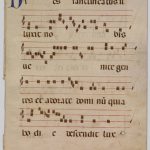 D es sanctificatus il
luxit no bis
ve nite gen
tes et adorate domi nū quia
ho di e descendit lux